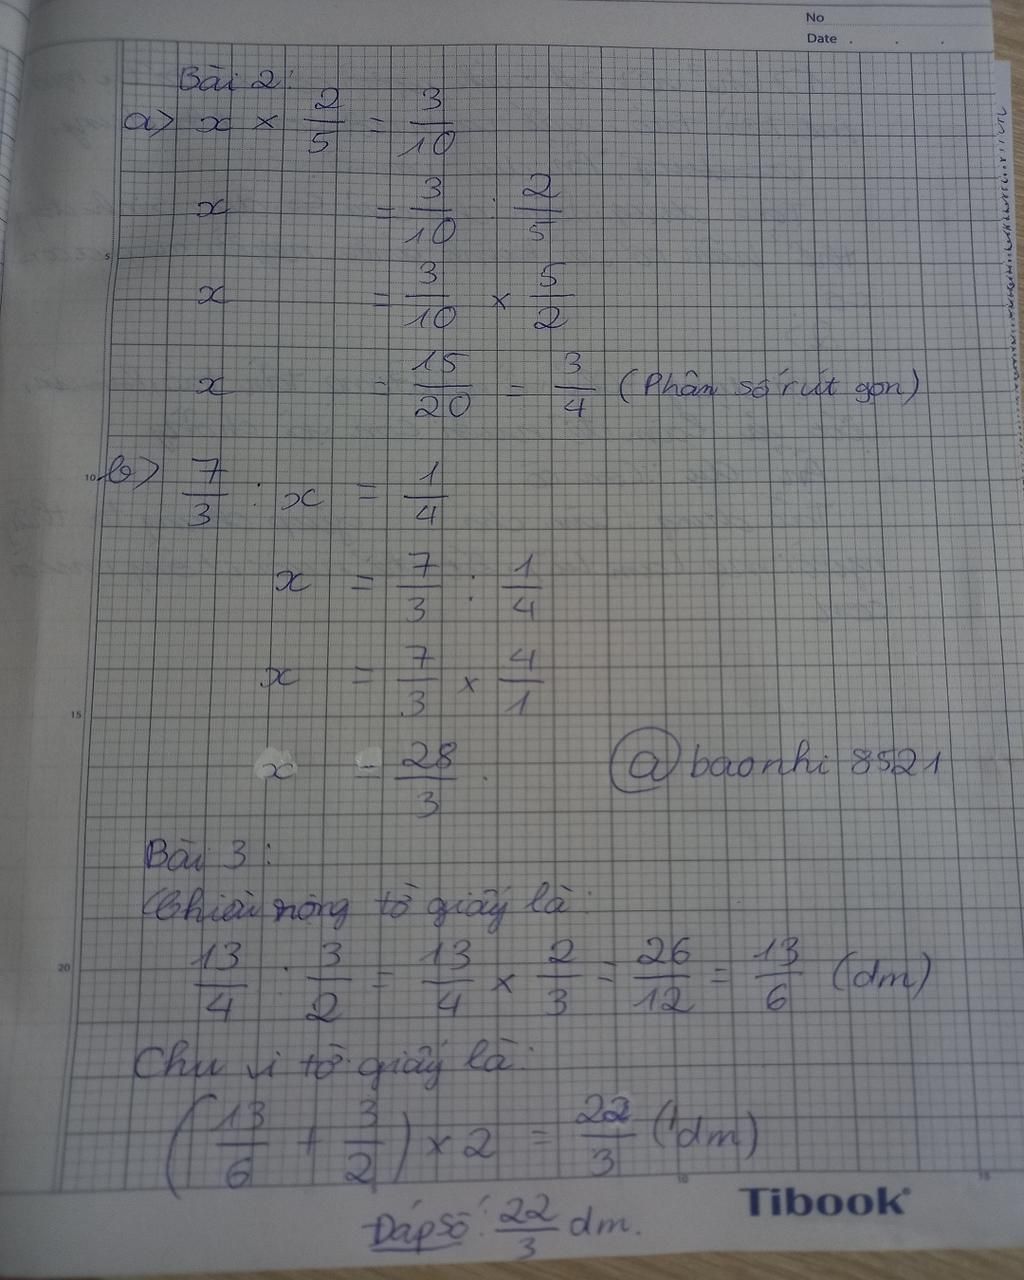 No
Date . . .
Bài 2:
a) x × 2/5 = 3/10
x = 3/10 : 2/5
5
x = 3/10 × 5/2
x = 15/20 = 3/4 (Phân số rút gọn)
10
b) 7/3 : x = 1/4
x = 7/3 : 1/4
x = 7/3 × 4/1
15
x = 28/3
@baonhi 8521
Bài 3:
Chiều rộng tờ giấy là:
20
13/4 : 3/2 = 13/4 × 2/3 = 26/12 = 13/6 (dm)
Chu vi tờ giấy là:
(13/6 + 3/2) × 2 = 22/3 (dm)
10
15
Tibook
Đáp số: 22/3 dm.